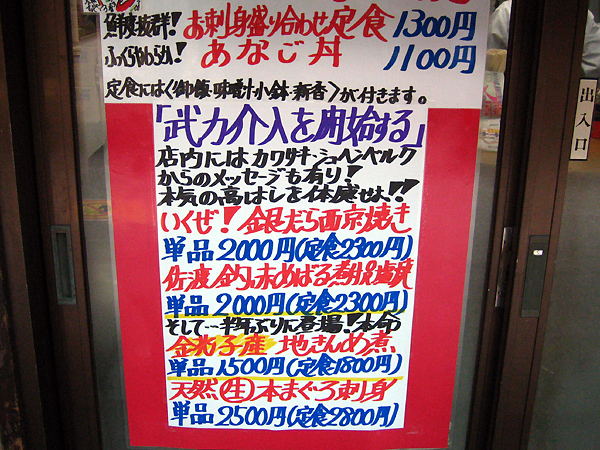 鮮度抜群！お刺身盛り合わせ定食 1300円
ふくらやわらか！ あなご丼 1100円
定食には〈御飯・味噌汁・小鉢・新香〉が付きます。
「武力介入を開始する」
店内にはカワサキ・シュヘンベルク
からのメッセージも有り！
本気の高はしを体感せよ！！
いくぜ！銀だら西京焼き
単品2000円(定食2300円)
佐渡ノ釣り赤めばる煮
単品2000円(定食2300円)
そして…半年ぶりに登場！本命
産 地きんめ煮
単品1500円(定食1800円)
天然生本まぐろ刺身
単品2500円(定食2800円)
出入口